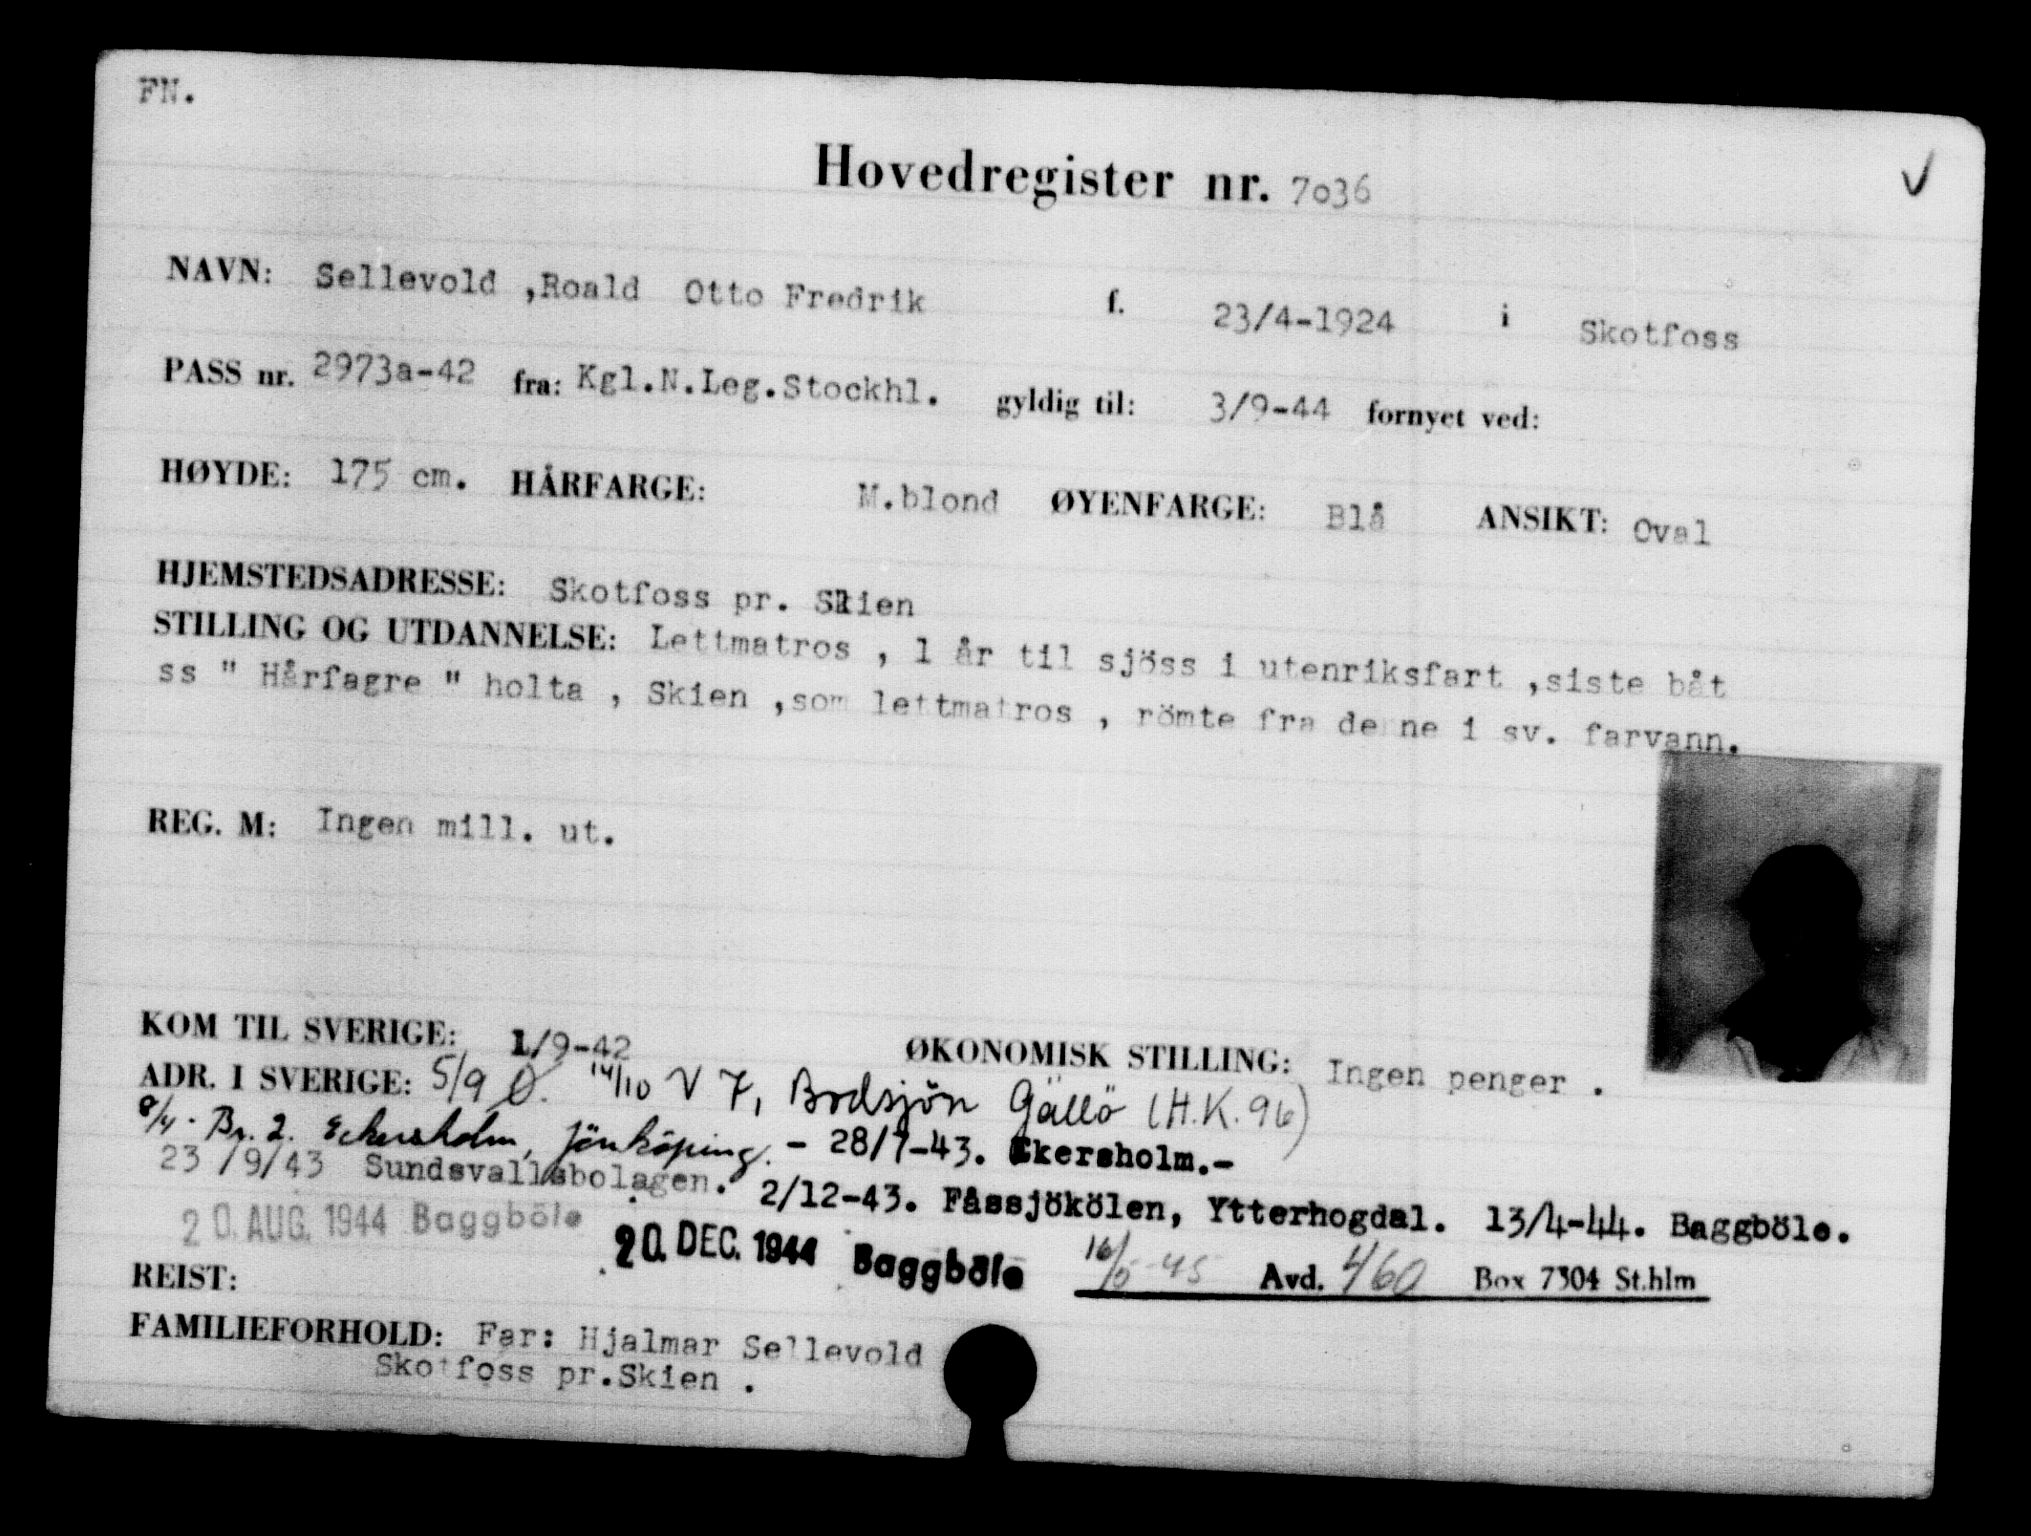 FN.
Hovedregister nr. 7036
NAVN: Sellevold ,Roald Otto Fredrik f. 23/4-1924 i Skotfoss
PASS nr. 2973a-42 fra: Kgl.N.Leg.Stockhl. gyldig til: 3/9-44 fornyet ved:
HØYDE: 175 cm. HÅRFARGE: M.blond ØYENFARGE: Blå ANSIKT: Oval
HJEMSTEDSADRESSE: Skotfoss pr. Skien
STILLING OG UTDANNELSE: Lettmatros , 1 år til sjöss i utenriksfart ,siste båt
ss " Hårfagre " holta , Skien ,som lettmatros , römte fra denne i sv. farvann.
REG. M: Ingen mill. ut.
KOM TIL SVERIGE: 1/9-42 ØKONOMISK STILLING: Ingen penger .
ADR. I SVERIGE: 5/9 Ö. 14/10 V 7, Bodsjön Gällö (H.K. 96)
8/4 - Br. 2. Eckersholm, Jönköping. - 28/7-43. Ekersholm.-
23/9/43 Sundsvallsbolagen. 2/12-43. Fåssjökölen, Ytterhogdal. 13/4-44. Baggböle.
20. AUG. 1944 Baggböle 20. DEC. 1944 Baggböle 16/5-45 Avd. 460 Box 7304 St.hlm
REIST:
FAMILIEFORHOLD: Far: Hjalmar Sellevold
Skotfoss pr.Skien .